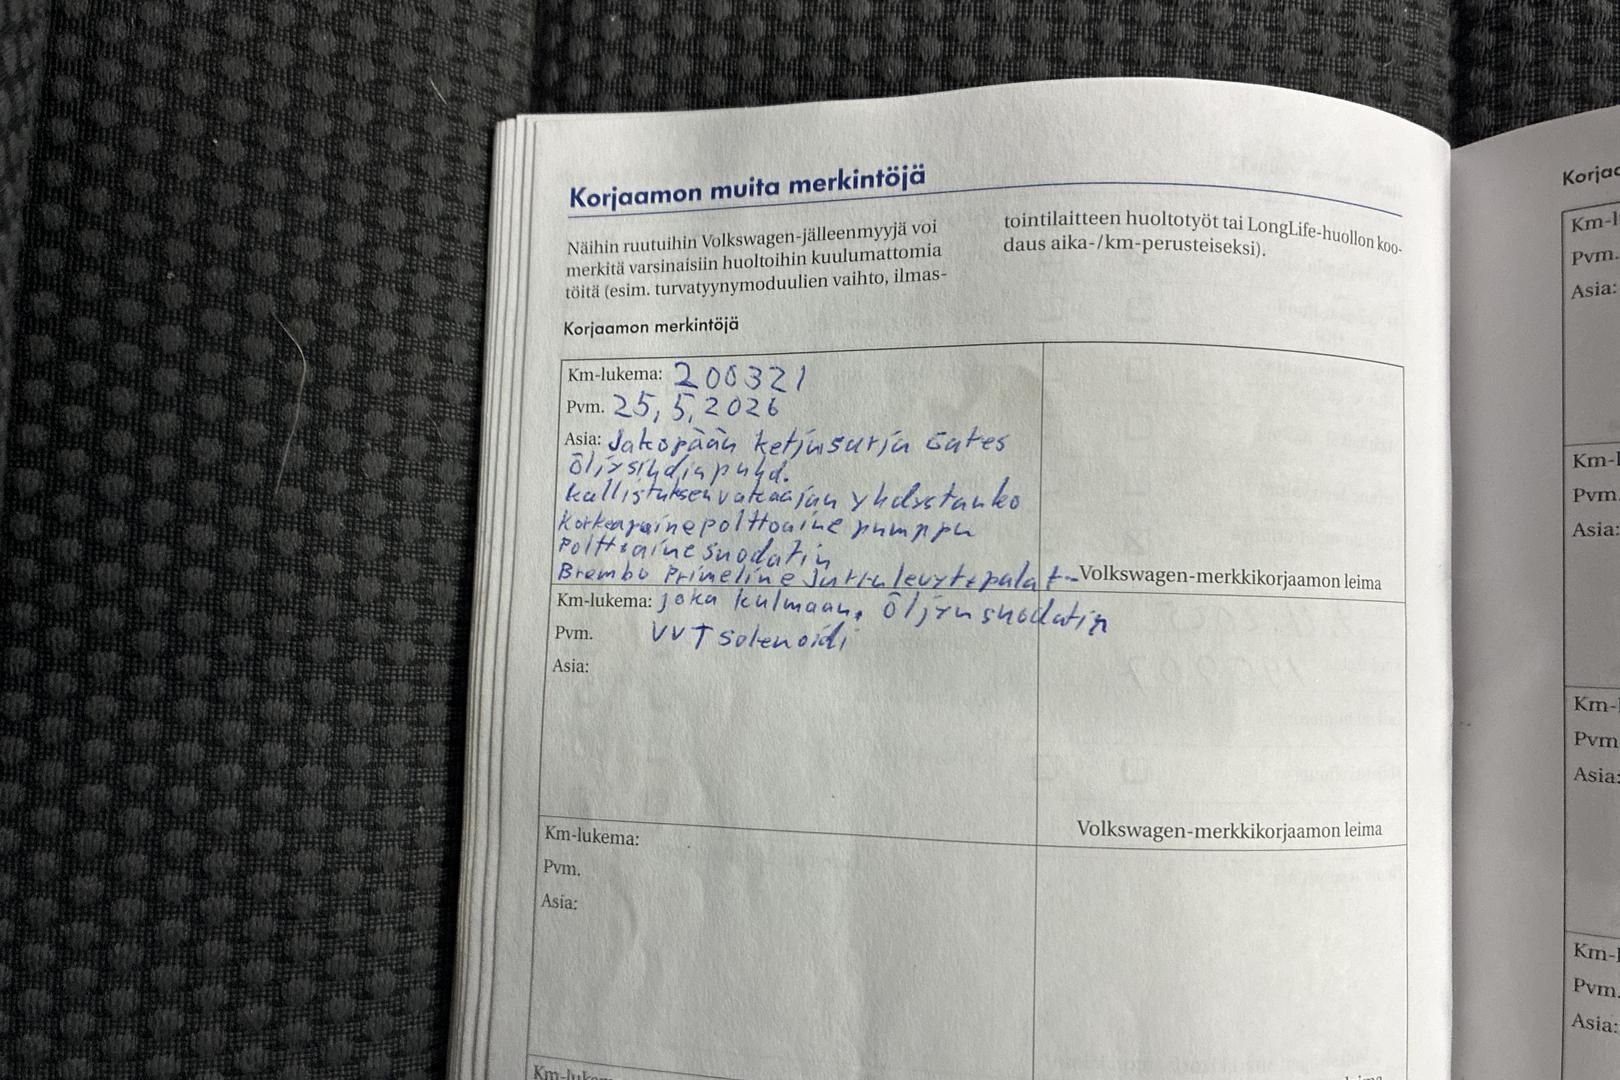 Korjaamon muita merkintöjä
Näihin ruutuihin Volkswagen-jälleenmyyjä voi
merkitä varsinaisiin huoltoihin kuulumattomia
töitä (esim. turvatyynymoduulien vaihto, ilmas-
tointilaitteen huoltotyöt tai LongLife-huollon koo-
daus aika-/km-perusteiseksi).
Korjaamon merkintöjä
Km-lukema: 200321
Pvm. 25,5,2026
Asia: Jakopään ketjusarja Gates
öljysihdin puhd.
kallistuksenvakaajan yhdystanko
Korkeapainepolttoaine pumppu
Polttoainesuodatin
Brembo Primeline Jarrulevyt+palat-
Volkswagen-merkkikorjaamon leima
Km-lukema: joka kulmaan, öljynsuodatin
Pvm. VVT solenoidi
Asia:
Volkswagen-merkkikorjaamon leima
Km-lukema:
Pvm.
Asia:
Korjaa
Km-l
Pvm.
Asia:
Km-l
Pvm.
Asia:
Km-
Pvm
Asia:
Km-l
Pvm.
Asia: